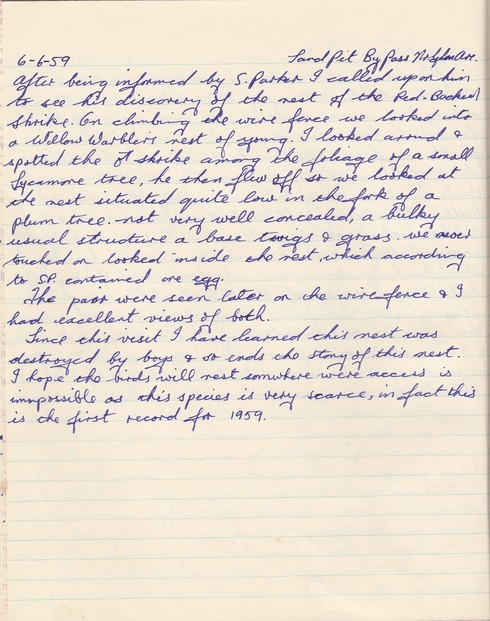 6-6-59 Sand Pit By Pass Nr Sylan Ave.
After being informed by S. Parker I called upon him
to see his discovery of the nest of the Red-Backed
Shrike. On climbing the wire fence we looked into
a Willow Warblers nest of young. I looked around &
spotted the ♂ shrike among the foliage of a small
Sycamore tree, he then flew off so we looked at
the nest situated quite low in the fork of a
plum tree. not very well concealed, a bulky
usual structure a base twigs & grass. we never
touched or looked inside the nest, which according
to S.P. contained one egg.
The pair were seen later on the wire fence & I
had excellent views of both.
Since this visit I have learned this nest was
destroyed by boys & so ends the story of this nest.
I hope the birds will nest somwhere were access is
imnpossible as this species is very scarce, in fact this
is the first record for 1959.